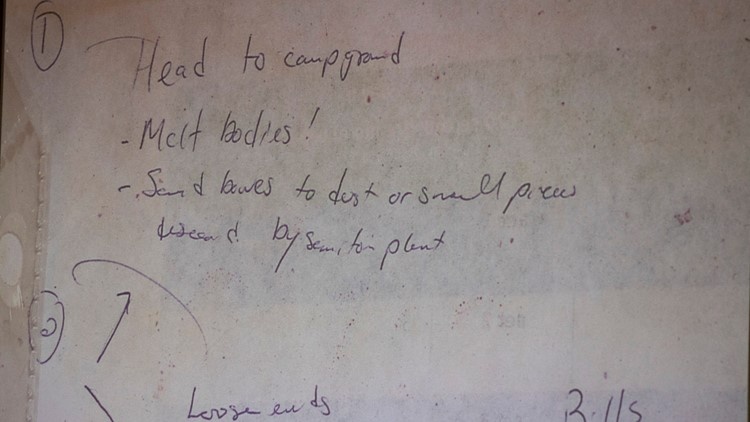 ①
Head to campground
- Melt bodies!
- Sand bones to dust or small pieces
discard by sanitoin plant
②
Loose ends
Bills